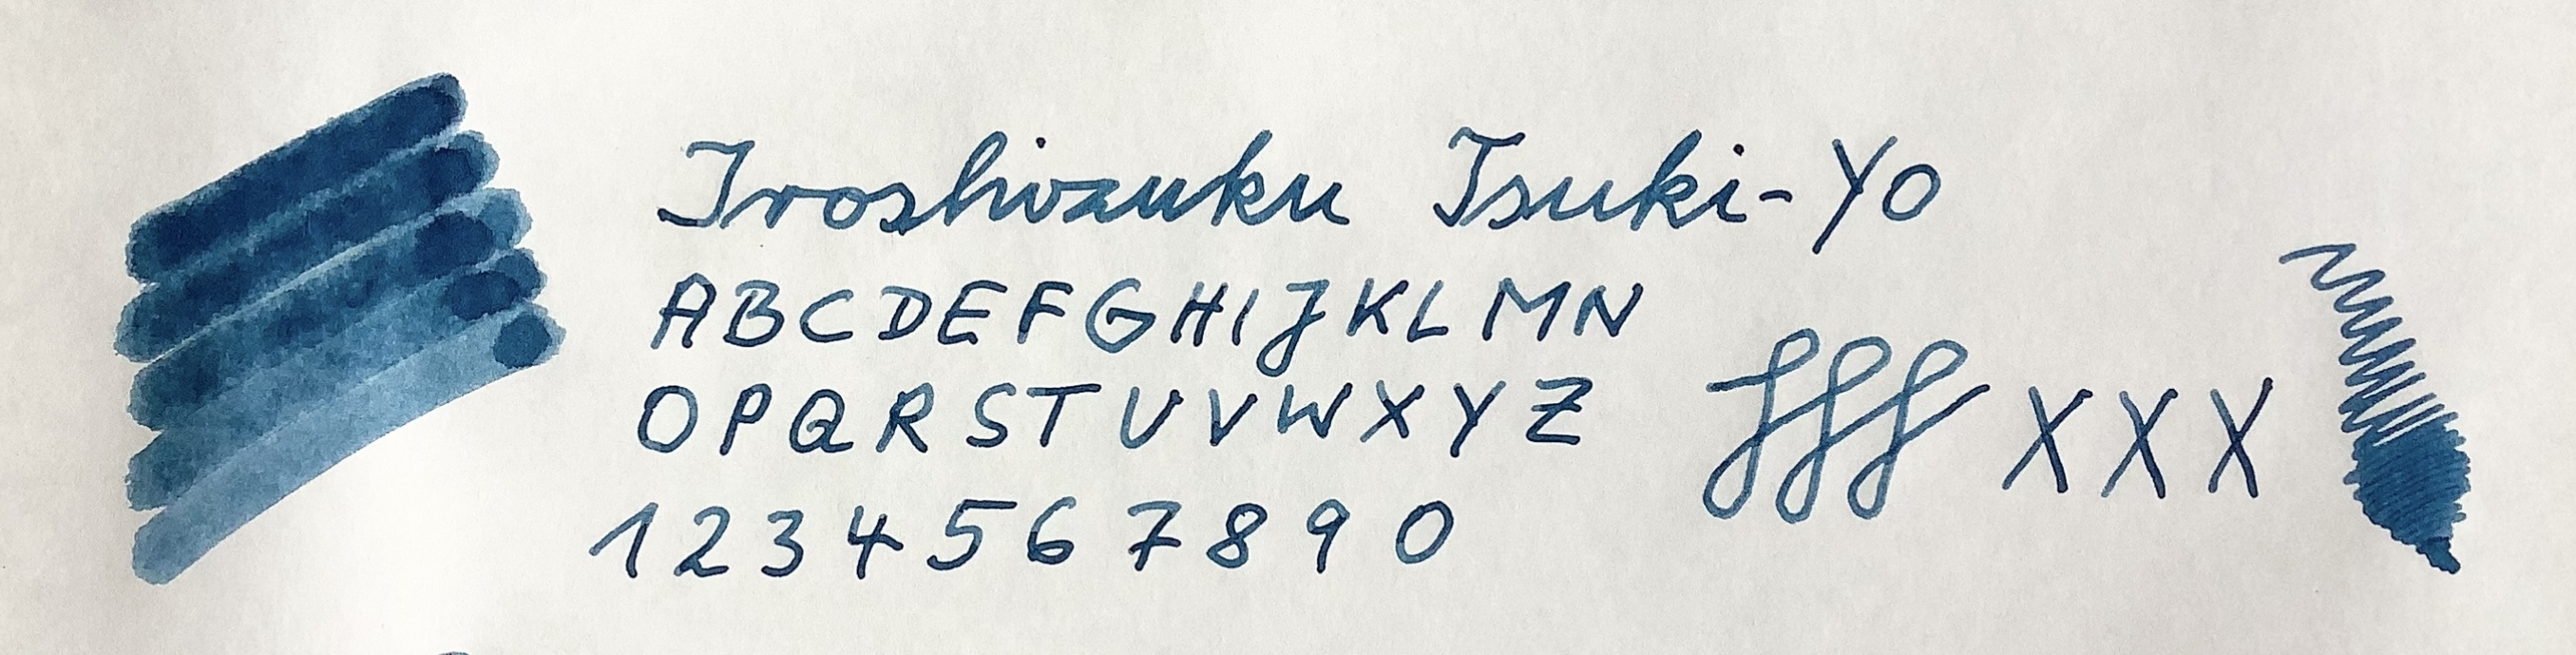 Iroshizuku Tsuki-Yo
ABCDEFGHIJKLMN
OPQRSTUVWXYZ
1234567890
fff XXX